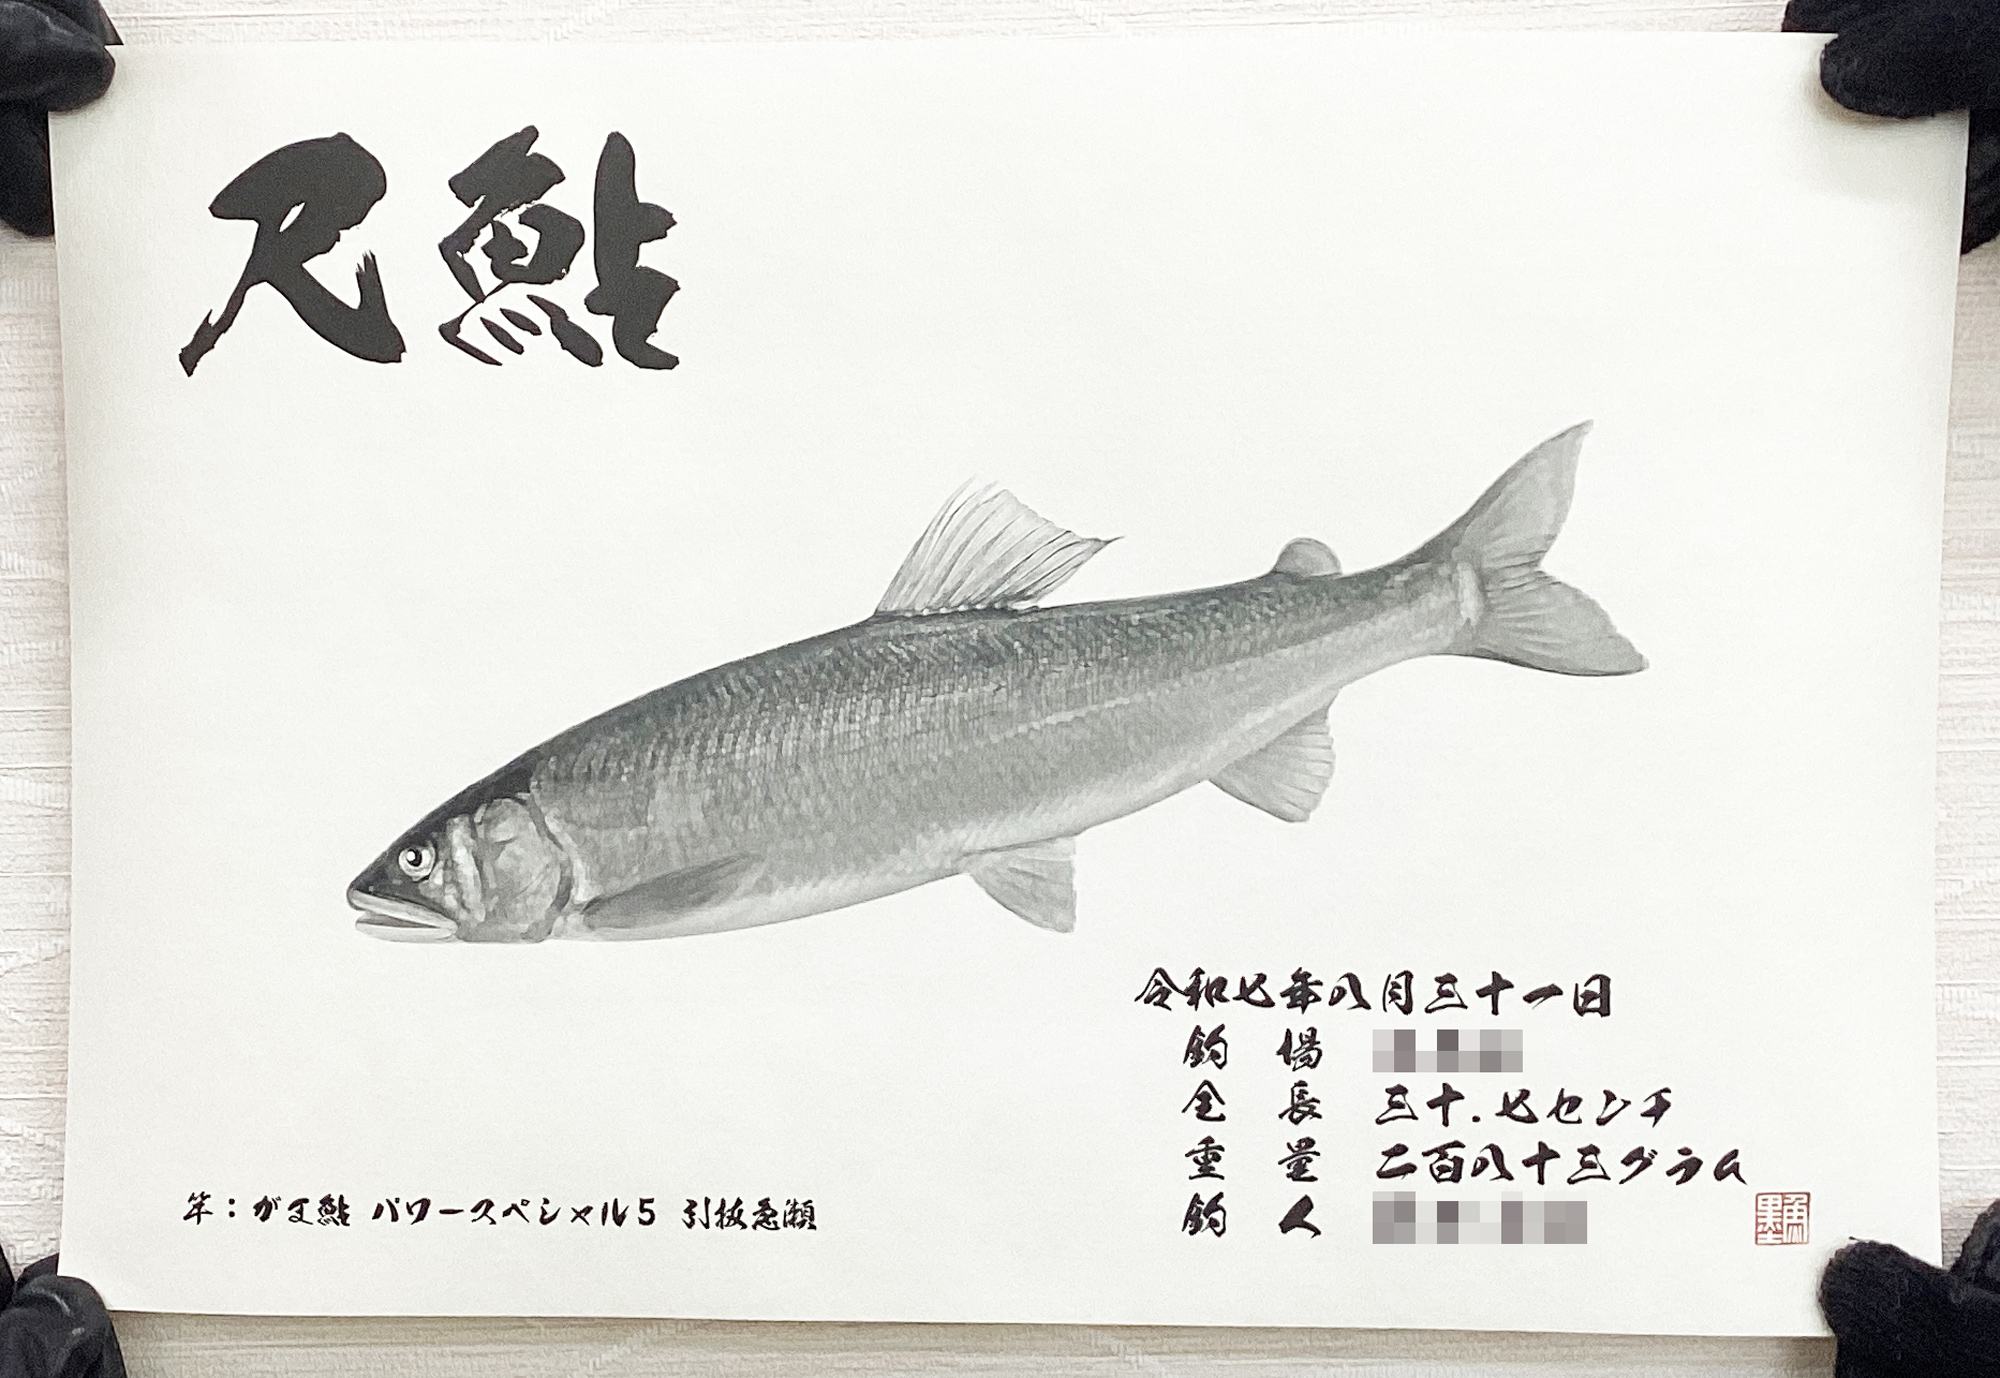 尺鮎
令和七年八月三十一日
釣場
全長 三十.七センチ
重量 二百八十三グラム
釣人
竿：がま鮎 パワースペシャル5 引抜急瀬
魚墨